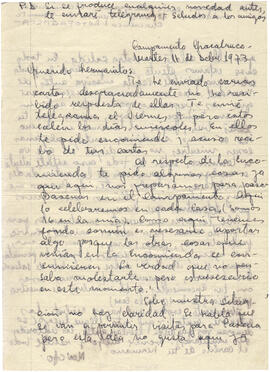 P.D. Si se produce cualquier novedad antes,
te enviaré telegrama. Saludos a los amigos
Campamento Chacabuco
Martes 11 de 1973
Querido hermanito:
Te he enviado varias
cartas, desgraciadamente no he reci-
bido respuesta de ellas. Te envié
telegrama el viernes, pero estos
salen los días miércoles. En ellos
te pedía encomienda y acuso reci-
bo de tus cartas.
Al respecto de la enco-
mienda te pido algunas cosas, ya
que aquí nos preparamos para pasar
Pascua en el Campamento. Aquí
lo celebraremos en cada casa. Somos
16 en la mía. Como aquí tenemos
fondo común es necesario aportar
algo porque las otras cosas que
venían en la encomienda se con-
sumieron. La verdad que no pen-
saba molestarte pero
en este momento.
Sobre nuestra situa-
ción no hay claridad. Se habla que
se van a permitir visitas para Pascua
pero esta idea no gusta aquí ya